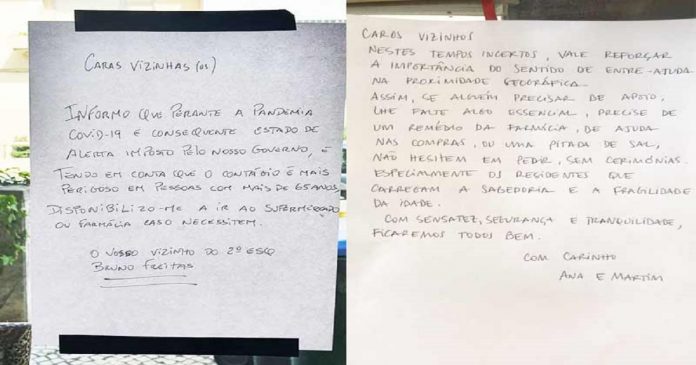 CARAS VIZINHAS (OS)
INFORMO QUE PERANTE A PANDEMIA
COVID-19 E CONSEQUENTE ESTADO DE
ALERTA IMPOSTO PELO NOSSO GOVERNO, E
TENDO EM CONTA QUE O CONTÁGIO É MAIS
PERIGOSO EM PESSOAS COM MAIS DE 65 ANOS
DISPONIBILIZO-ME A IR AO SUPERMERCADO
OU FARMÁCIA CASO NECESSITEM.
O VOSSO VIZINHO DO 2º ESQ
BRUNO FREITAS
CAROS VIZINHOS
NESTES TEMPOS INCERTOS, VALE REFORÇAR
A IMPORTÂNCIA DO SENTIDO DE ENTRE-AJUDA
NA PROXIMIDADE GEOGRÁFICA.
ASSIM, SE ALGUÉM PRECISAR DE APOIO,
LHE FALTE ALGO ESSENCIAL, PRECISE DE
UM REMÉDIO DA FARMÁCIA, DE AJUDA
NAS COMPRAS, OU UMA PITADA DE SAL,
NÃO HESITEM EM PEDIR, SEM CERIMÓNIAS.
ESPECIALMENTE OS RESIDENTES QUE
CARREGAM A SABEDORIA E A FRAGILIDADE
DA IDADE.
COM SENSATEZ, SEGURANÇA E TRANQUILIDADE,
FICAREMOS TODOS BEM.
COM CARINHO
ANA E MARTIM